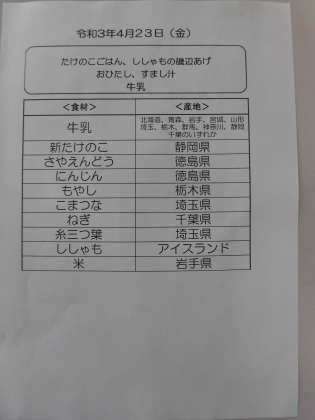 令和3年4月23日（金）
たけのこごはん、ししゃもの磯辺あげ
おひたし、すまし汁
牛乳
＜食材＞ ＜産地＞
牛乳 北海道、青森、岩手、宮城、山形
埼玉、栃木、群馬、神奈川、静岡
千葉のいずれか
新たけのこ 静岡県
さやえんどう 徳島県
にんじん 徳島県
もやし 栃木県
こまつな 埼玉県
ねぎ 千葉県
糸三つ葉 埼玉県
ししゃも アイスランド
米 岩手県